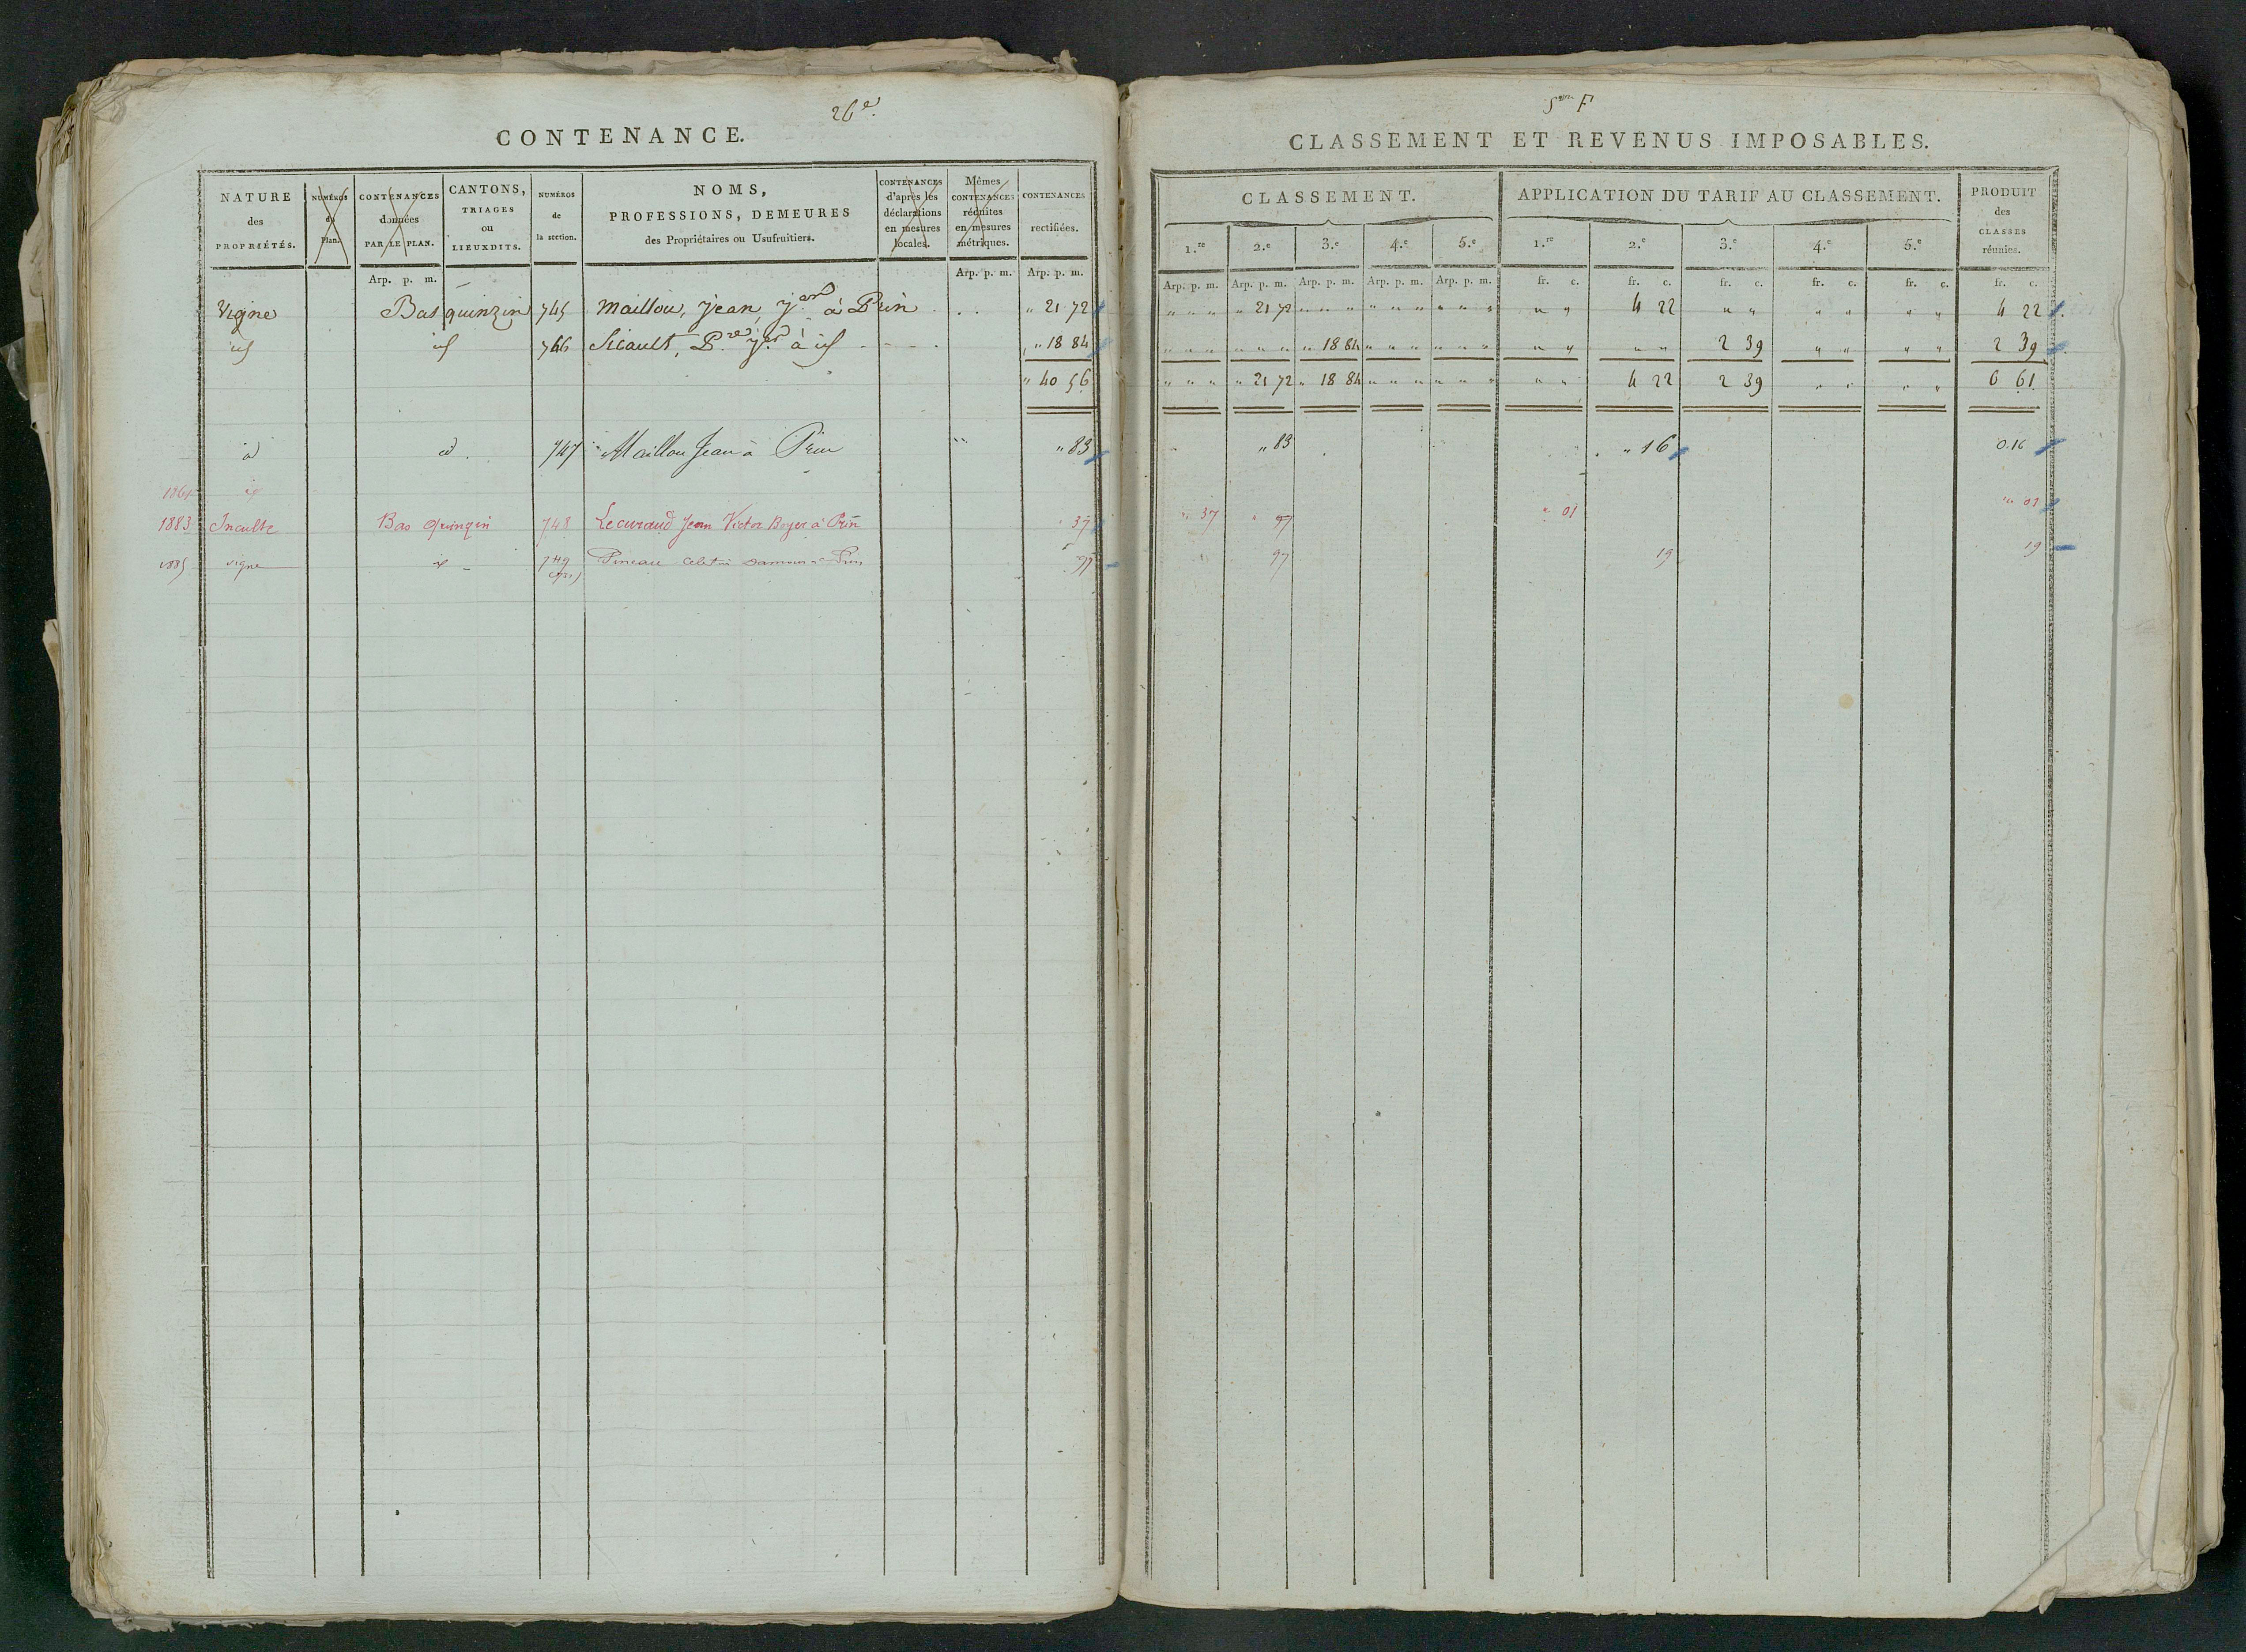 26e.
CONTENANCE.
NATURE des PROPRIÉTÉS. NUMÉROS du Plan. CONTENANCES données PAR LE PLAN. CANTONS, TRIAGES ou LIEUXDITS. NUMÉROS de la section. NOMS, PROFESSIONS, DEMEURES des Propriétaires ou Usufruitiers. CONTENANCES d'après les déclarations en mesures locales. Mêmes CONTENANCES réduites en mesures métriques. CONTENANCES rectifiées.
Arp. p. m. Arp. p. m. Arp. p. m.
Vigne Bas quinzin 745 Maillou, Jean, à Prin " 21 72
id id 746 Sicault, P.re à id " 18 84
" 40 56
id id 747 Maillou Jean à Prin " 83
1861 id
1883 Inculte Bas Quinzin 748 Jean Victor Boyer à Prin " 37
1885 vigne id 749 97
Son F
CLASSEMENT ET REVENUS IMPOSABLES.
CLASSEMENT. APPLICATION DU TARIF AU CLASSEMENT. PRODUIT des CLASSES réunies.
1.re 2.e 3.e 4.e 5.e 1.re 2.e 3.e 4.e 5.e
Arp. p. m. Arp. p. m. Arp. p. m. Arp. p. m. Arp. p. m. fr. c. fr. c. fr. c. fr. c. fr. c. fr. c.
" " " " 21 72 " " " " " " " " " " " 4 22 " " " " " " 4 22
" " " " " " " 18 84 " " " " " " " " " " 2 39 " " " " 2 39
" " " " 21 72 " 18 84 " " " " " " " " 4 22 2 39 " " " " 6 61
" 83 " 16 0.16
" 37 " 97 " 01 " 01
97 19 19